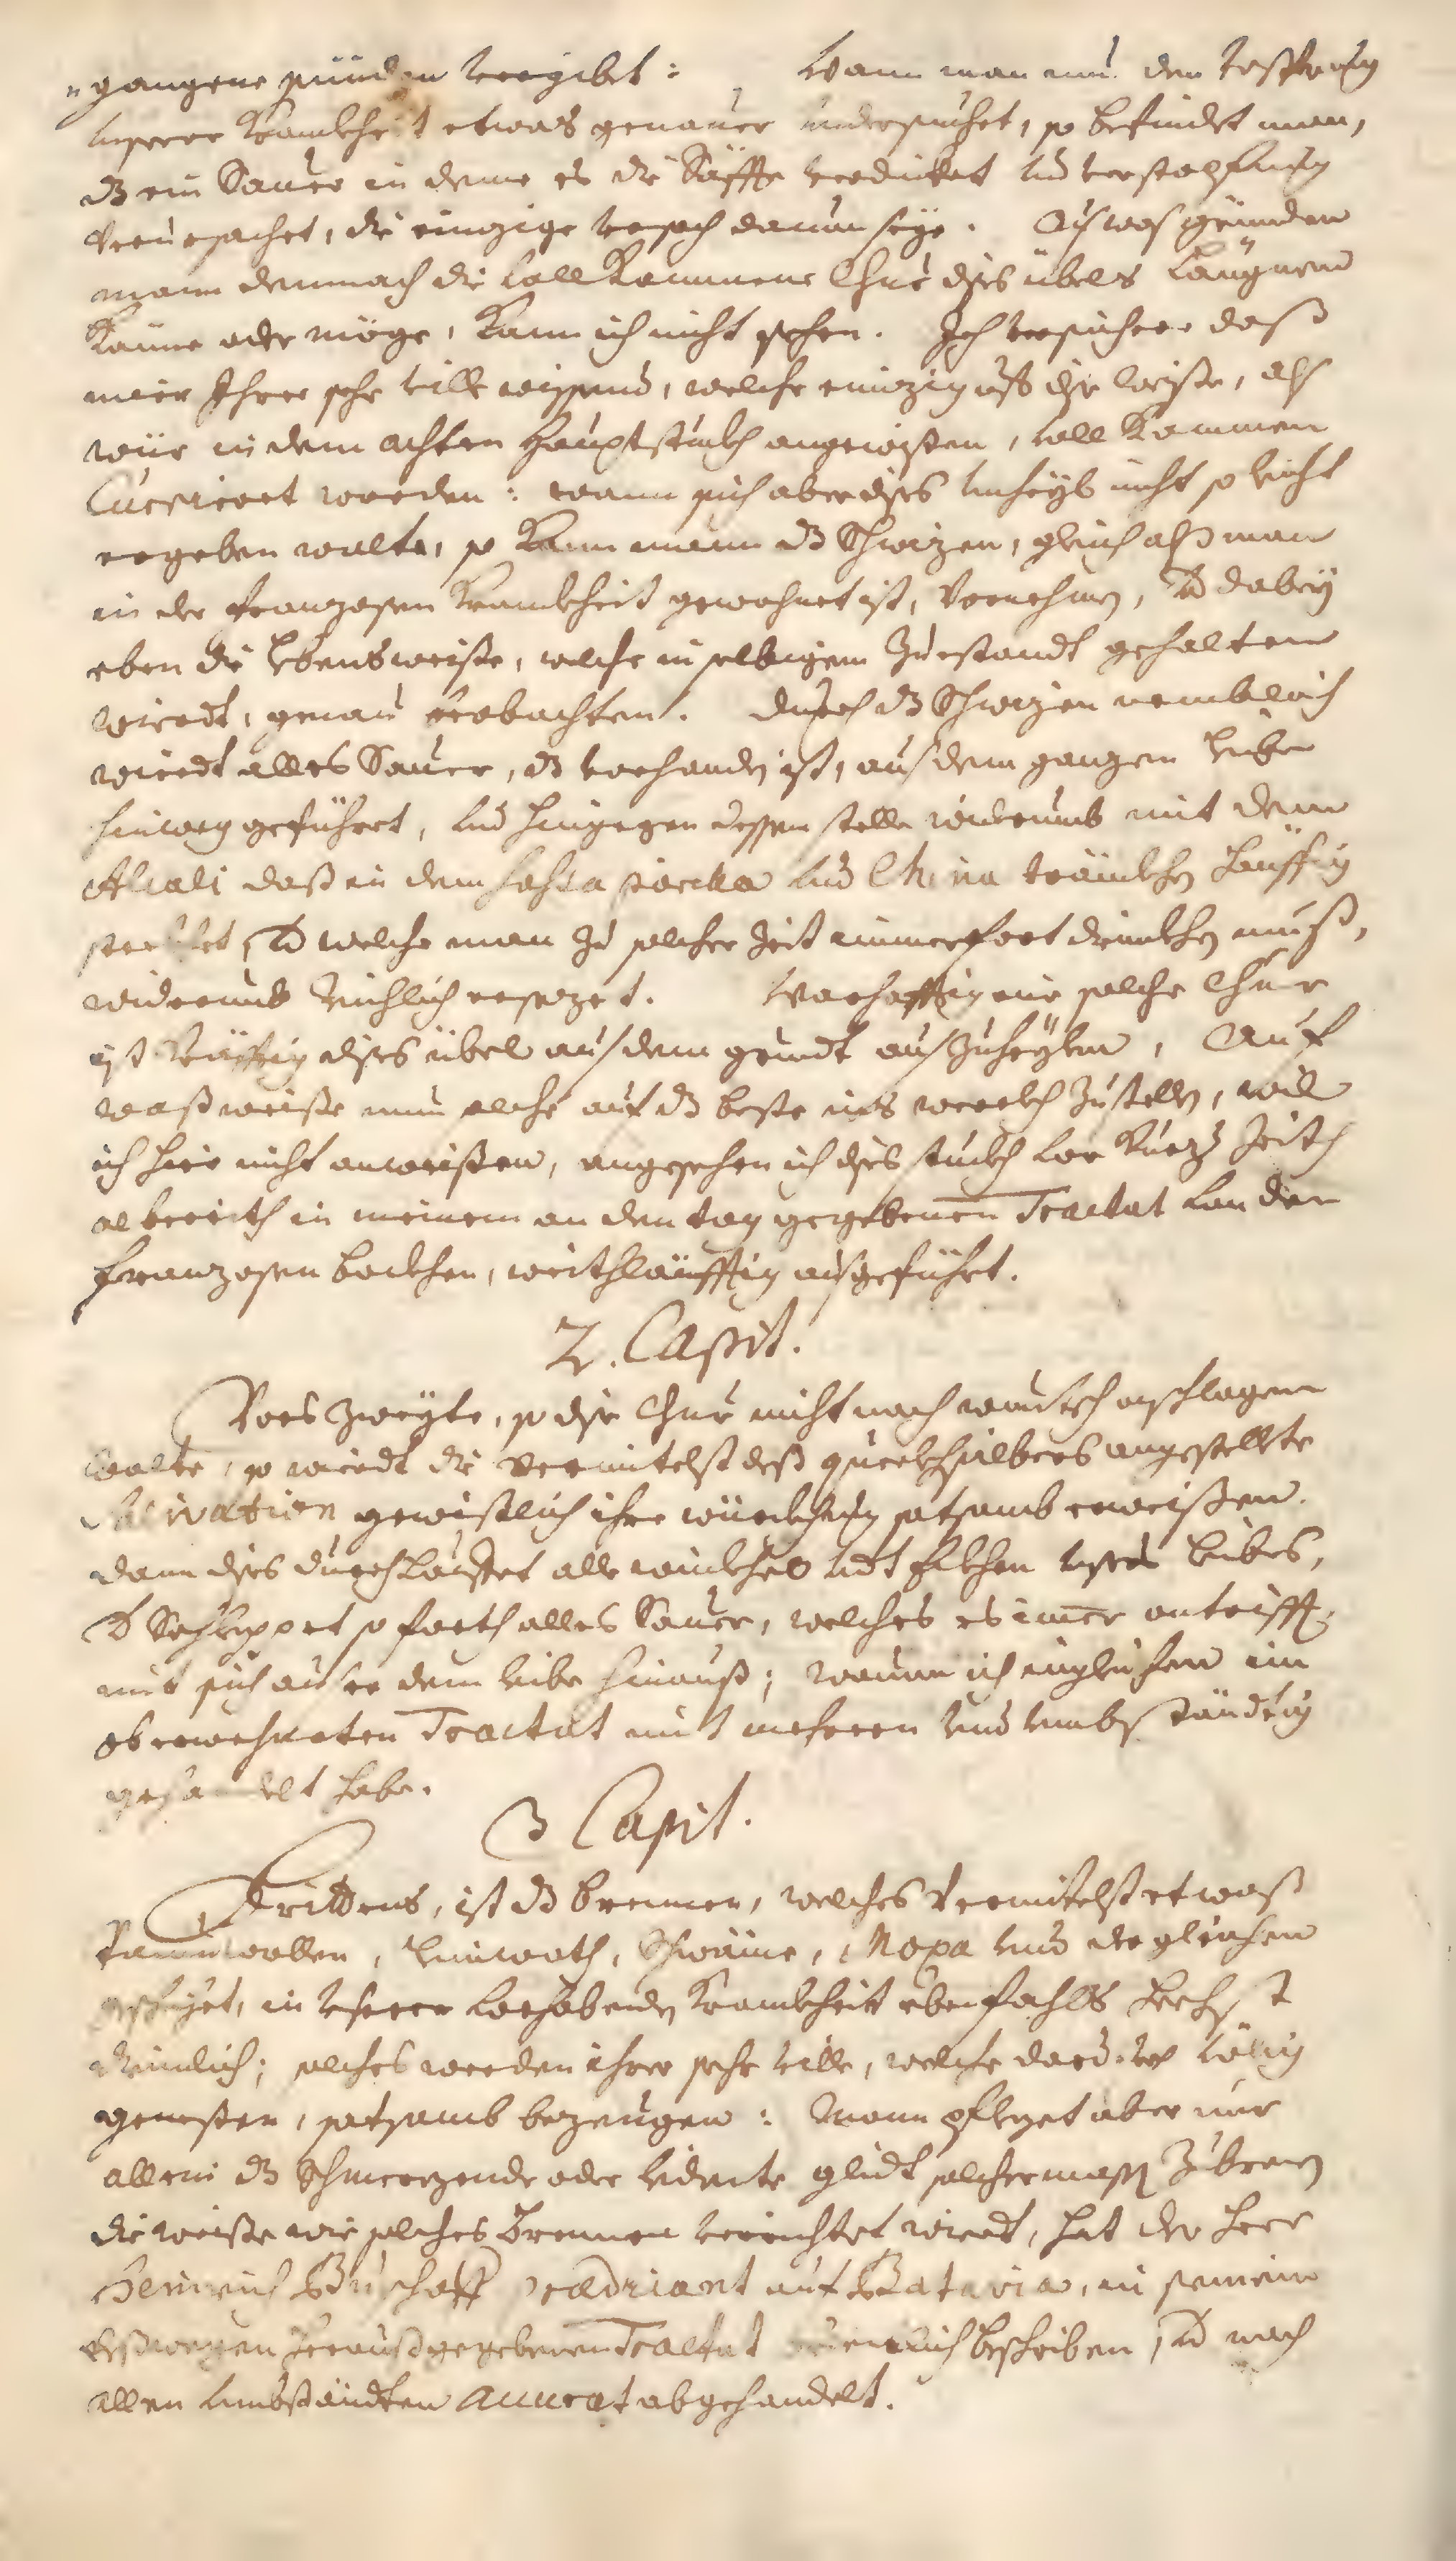 "gangene sünden vergibt: Wann man nun den Uhrsprung
unserer Kranckheit etwas genauer undersuchet, so befindet man,
dz ein Sauer in deme es die Säffte verdicket und verstopfung
verursachet, die einzige ursach darum seye. Auß was gründen
mann demnach die vollkommene Chur dises übels läugnen
könne oder möge, kann ich nicht sehen. Ich versichere daß
mier Ihrer sehr viell wissend, welche einzig auf dise weiße, alß
wür in dem achten Hauptstuckh angewisen, vollkommen
Curriert worden: wann sich aber dises unheyl nicht so leicht
ergeben wolte, so kann mann dz Schwizen, gleich alß man
in der franzosen Kranckheit gewohnet ist, vornehmen, und dabey
eben die Lebensweiße, welche in selbigem Zuestandt gehalten
wirdt, genau beobachten. Durch dz Schwizen nemblich
wirdt alles Sauer, dz vorhanden ist, auß dem ganzen Leibe
hinweg geführt, und hingegen dessen stelle widerumb mit dem
Alcali daß in dem Sassa parilla und China tränckhen häuffig
stecket, und welche man zu solcher Zeit immerfort drinckhen muß,
widerumb reichlich ersezet. Warhafftig eine solche Chur
ist kräfftig dises übel auß dem grundt auß zuheylen, Auf
waß weiße nun solche auf dz beste ins werckh zustellen, will
ich hier nicht anweißen, angesehen ich dises stuckh vor kurz Zeith
albereith in meinem an den tag gegebenen Tractat von den
franzosen bockhen, weithläuffig außgeführt.
2. Capit.
Vors zweyte, so dise Chur nicht nach wunsch außschlagen
wolte, so wirdt die vermitelst deß queckhsilbers angestellte
Salivation gewißlich ihre würckhung satsamb erweißen.
dann dises durchlauffet alle winckhel und Eckhen unsers Leibes,
und schleppet so forth alles Sauer, welches es imer antrifft,
mit sich auser dem leibe hinauß; wovon ich ingleichen im
oberwehnten Tractat mit mehreren und umbständtig
gehandelt habe.
3 Capit.
Drittens, ist dz brennen, welches vermitelst etwaß
Baumwollen, Leinwath, Schwäme, Moxa und dergleichen
geschiehet, in unserer vorhabenden Kranckheit ebenfahls höchst
dienlich; solches werden ihrer sehr viele, welche dardurch völlig
genesen, satsamb bezeugen: Mann pfleget aber nur
allein dz Schmerzende oder leidente glidt solchermaßen zubrenen
die weiße wie solches Brennen verrichtet wirdt, hat der Herr
Heinrich Buschoff Predicant auf Batavia, in seinem
deßwegen heraußgegebenen Tractat beschriben, und nach
allen umbständten accurat abgehandelt.